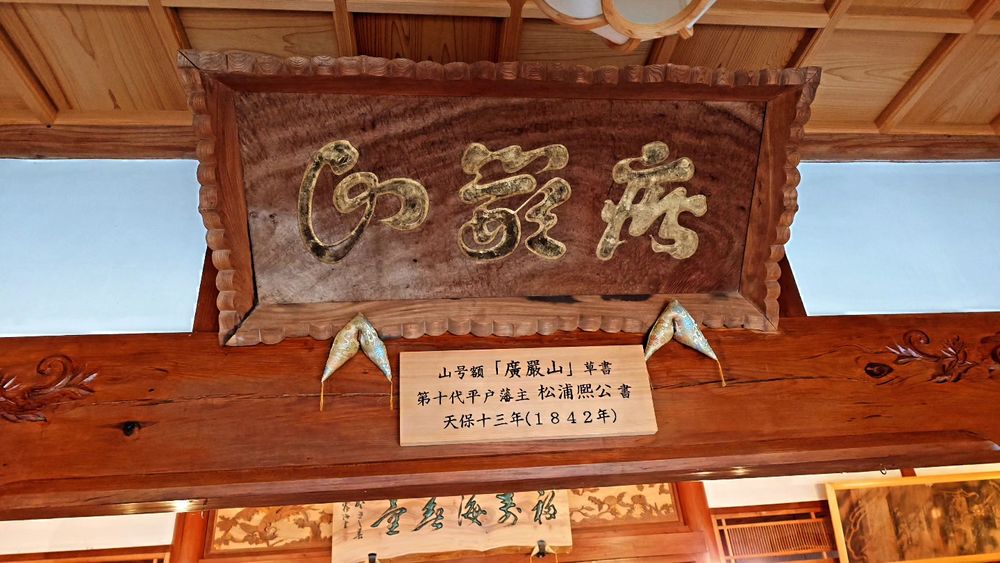 廣嚴山
山号額「廣嚴山」草書
第十代平戸藩主 松浦熈公 書
天保十三年(1842年)
福壽海無量